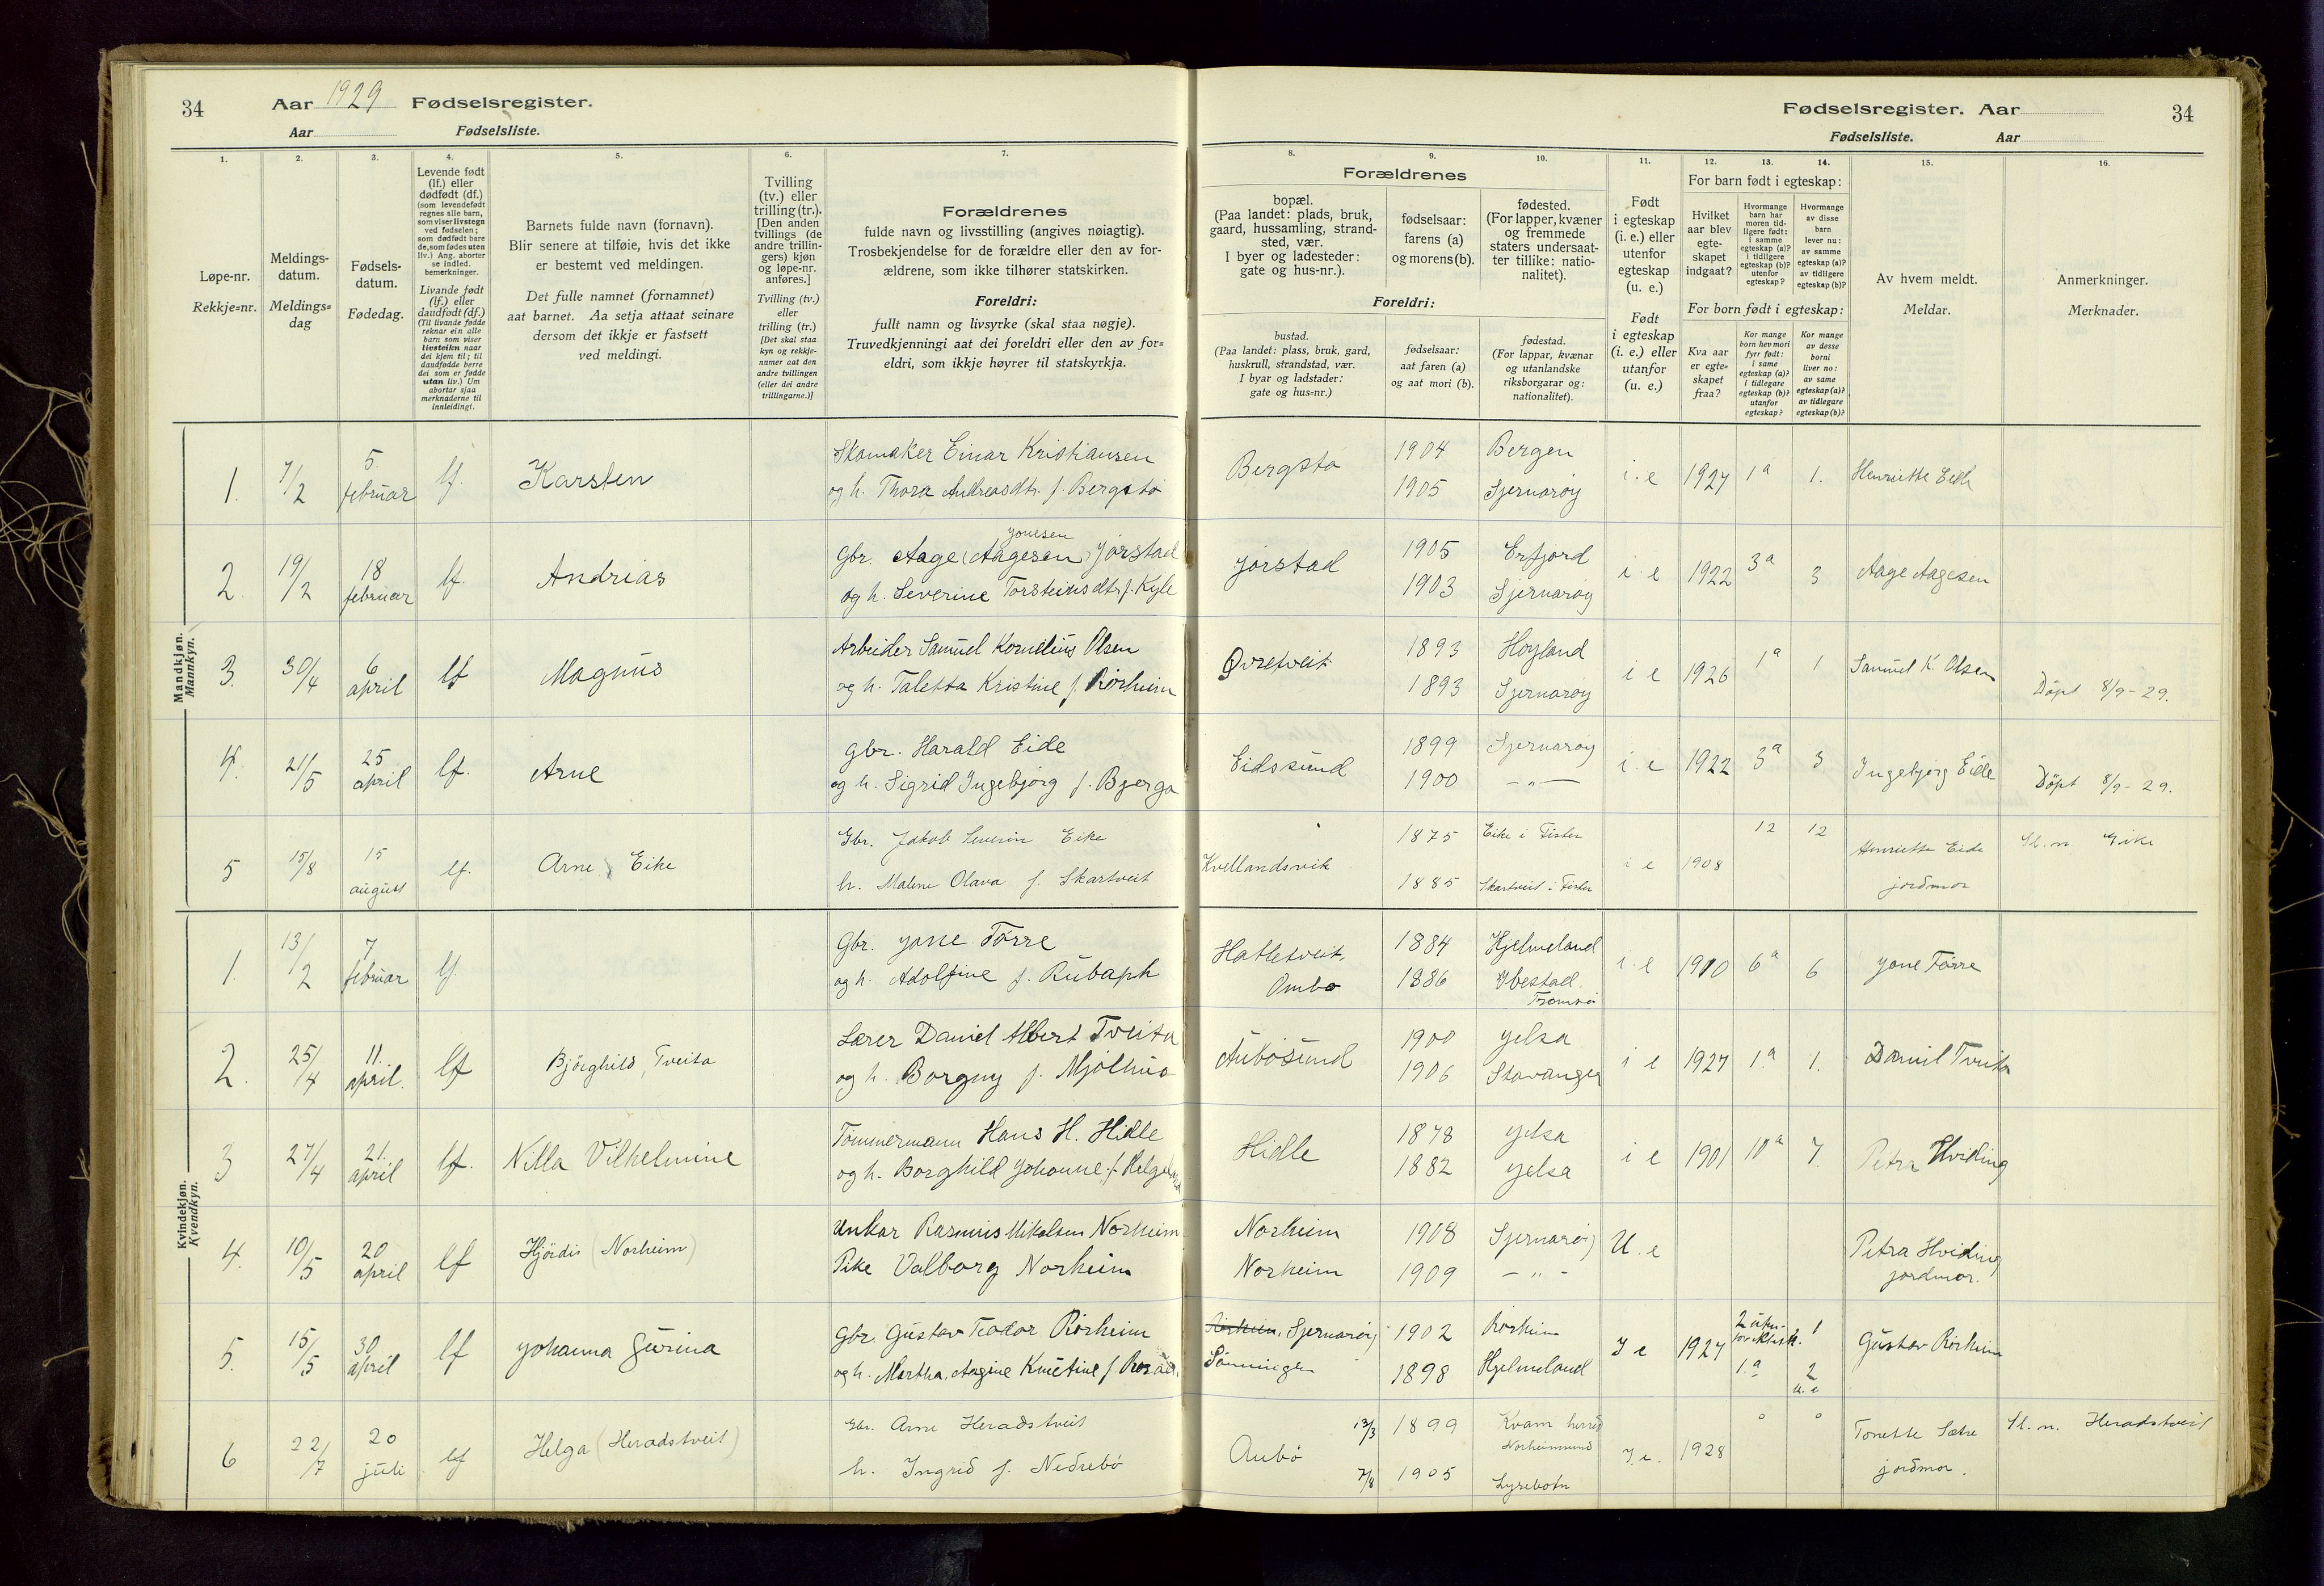 34 Aar 1929 Fødselsregister.
Aar Fødselsliste.
Fødselsregister. Aar 34
Fødselsliste. Aar
1. 2. 3. 4. 5. 6. 7. 8. 9. 10. 11. 12. 13. 14. 15. 16.
Løpe-nr.
Rekkje=nr.
Meldings-
datum.
Meldings=
dag
Fødsels-
datum.
Fødedag.
Levende født
(lf.) eller
dødfødt (df.)
(som levendefødt
regnes alle barn,
som viser livstegn
ved fødselen;
som dødfødt bare
de, som fødes uten
liv.) Ang. aborter
se indled.
bemerkninger.
Livande født
(lf.) eller
daudfødt (df.)
(Til livande fødde
reknar ein alle
barn som viser
livsteikn naar
dei kjem til; til
daudfødde berre
dei som er fødde
utan liv.) Um
abortar sjaa
merknaderne til
innleidingi.
Barnets fulde navn (fornavn).
Blir senere at tilføie, hvis det ikke
er bestemt ved meldingen.
Det fulle namnet (fornamnet)
aat barnet. Aa setja attaat seinare
dersom det ikkje er fastsett
ved meldingi.
Tvilling
(tv.) eller
trilling (tr.).
[Den anden
tvillings (de
andre trillin-
gers) kjøn
og løpe-nr.
anføres.]
Tvilling (tv.)
eller
trilling (tr.)
[Det skal staa
kyn og rekkje-
numer aat den
andre tvillingen
(eller dei andre
trillingarne.)]
Forældrenes
fulde navn og livsstilling (angives nøiagtig).
Trosbekjendelse for de forældre eller den av for-
ældrene, som ikke tilhører statskirken.
Foreldri:
fullt namn og livsyrke (skal staa nøgje).
Truvedkjenningi aat dei foreldri eller den av for=
eldri, som ikkje høyrer til statskyrkja.
Forældrenes
bopæl.
(Paa landet: plads, bruk,
gaard, hussamling, strand-
sted, vær.
I byer og ladesteder:
gate og hus-nr.).
fødselsaar:
farens (a)
og morens (b).
fødested.
(For lapper, kvæner
og fremmede
staters undersaat-
ter tillike: natio-
nalitet).
Foreldri:
bustad.
(Paa landet: plass, bruk, gard,
huskrull, strandstad, vær.
I byar og ladstader:
gate og hus=nr.)
fødselsaar:
aat faren (a)
og aat mori (b).
fødestad.
(For lappar, kvænar
og utanlandske
riksborgarar og:
nationalitet).
Født
i egteskap
(i. e.) eller
utenfor
egteskap
(u. e.)
Født
i egteskap
(i. e.) eller
utanfor
(u. e.)
For barn født i egteskap:
Hvilket
aar blev
egte-
skapet
indgaat?
Hvormange
barn har
moren tid-
ligere født:
i samme
egteskap (a)?
i tidligere
egteskap (b)?
utenfor
egteskap?
Hvormange
av disse
barn
lever nu:
av samme
egteskap (a)?
av tidligere
egteskap (b)?
For born født i egteskap:
Kva aar
er egte=
skapet
fraa?
Kor mange
born hev mori
fyrr født:
i same
egteskap (a)?
i tidlegare
egteskap (b)?
utanfor
egteskap?
Kor mange
av desse
borni
liver no:
av same
egteskap (a)?
av tidlegare
egteskap (b)?
Av hvem meldt.
Meldar.
Anmerkninger.
Merknader.
Mandkjøn.
Mannkyn.
1. 7/2 5. februar lf. Karsten Skomaker Einar Kristiansen
og h. Thora Andreasdtr. f. Bergstø
Bergstø 1904 Bergen i. e 1927 1a 1. Henriette Eide
1905 Sjernarøy
2. 19/2 18 februar lf. Andrias Gbr. Aage (Aagesen) Jonesen Jørstad
og h. Severine Torsteinsdtr. f. Kyle
Jørstad 1905 Erfjord i. e 1922 3a 3 Aage Aagesen
1903 Sjernarøy
3. 30/4 6 april lf Magnus Arbeider Samuel Kornelius Olsen
og h. Taletta Kristine f. Rørheim
Øvretveit 1893 Høyland i e 1926 1a 1 Samuel K. Olsen Döpt 8/9-29.
1893 Sjernarøy
4. 21/5 25 april lf. Arne Gbr. Harald Eide
og h. Sigrid Ingebjørg f. Bjerga
Eidssund 1899 Sjernarøy i. e 1922 3a 3 Ingebjørg Eide Döpt 8/9-29.
1900 — " —
5 15/8 15 august lf. Arne Eike Gbr. Jakob Severin Eike
h. Malene Olava f. Skartveit
Kvellandsvik 1875 Eike i Fister i e 1908 12 12 Henriette Eide jordmor Sl. n Eike
1885 Skartveit i Fister
Kvindekjøn.
Kvendkyn.
1. 13/2 7 februar lf. Gbr. Jone Tørre
og h. Adolfine f. Rubaph
Hatletveit, Ombo 1884 Hjelmeland i. e 1910 6a 6 Jone Tørre
1886 Ibestad Tromsø
2. 25/4 11. april. lf Bjørghild Tveita Lærer Daniel Albert Tveita
og h. Borgny f. Mjølhus
Aubøsund 1900 Jelsa i e 1927 1.a 1. Daniel Tveita
1906 Stavanger
3 27/4 21. april lf. Nilla Vilhelmine Tømmermann Hans H. Hidle
og h. Borghild Johanne f. Helgeland
Hidle 1878 Jelsa i e 1901 10a 7. Petra Hviding
1882 Jelsa
4. 10/5 20 april lf Hjördis (Norheim) Unkar Rasmus Mikalsen Norheim
Pike Valborg Norheim
Norheim 1908 Sjernarøy U. e Petra Hviding
Norheim 1909 — " — jordmor.
5. 15/5 30 april lf Johanna Gurina Gbr. Gustav Teodor Rørheim
og h. Martha
Rørheim, Sjernarøy 1902 Rørheim I e 1927 2 1 Gustav Rørheim
1898 Hjelmeland 1.a 2 u. e
6 22/7 20 juli lf Helga (Heradstveit) Gbr. Arne Heradstveit
h. Ingrid f. Nedrebö
Aubö 13/3 1899 Kvam herred Norheimsund I. e. 1928 0 0 Tonette Sætre Sl. n. Heradstveit
7/8 1905 Lyrebotn jordmor.